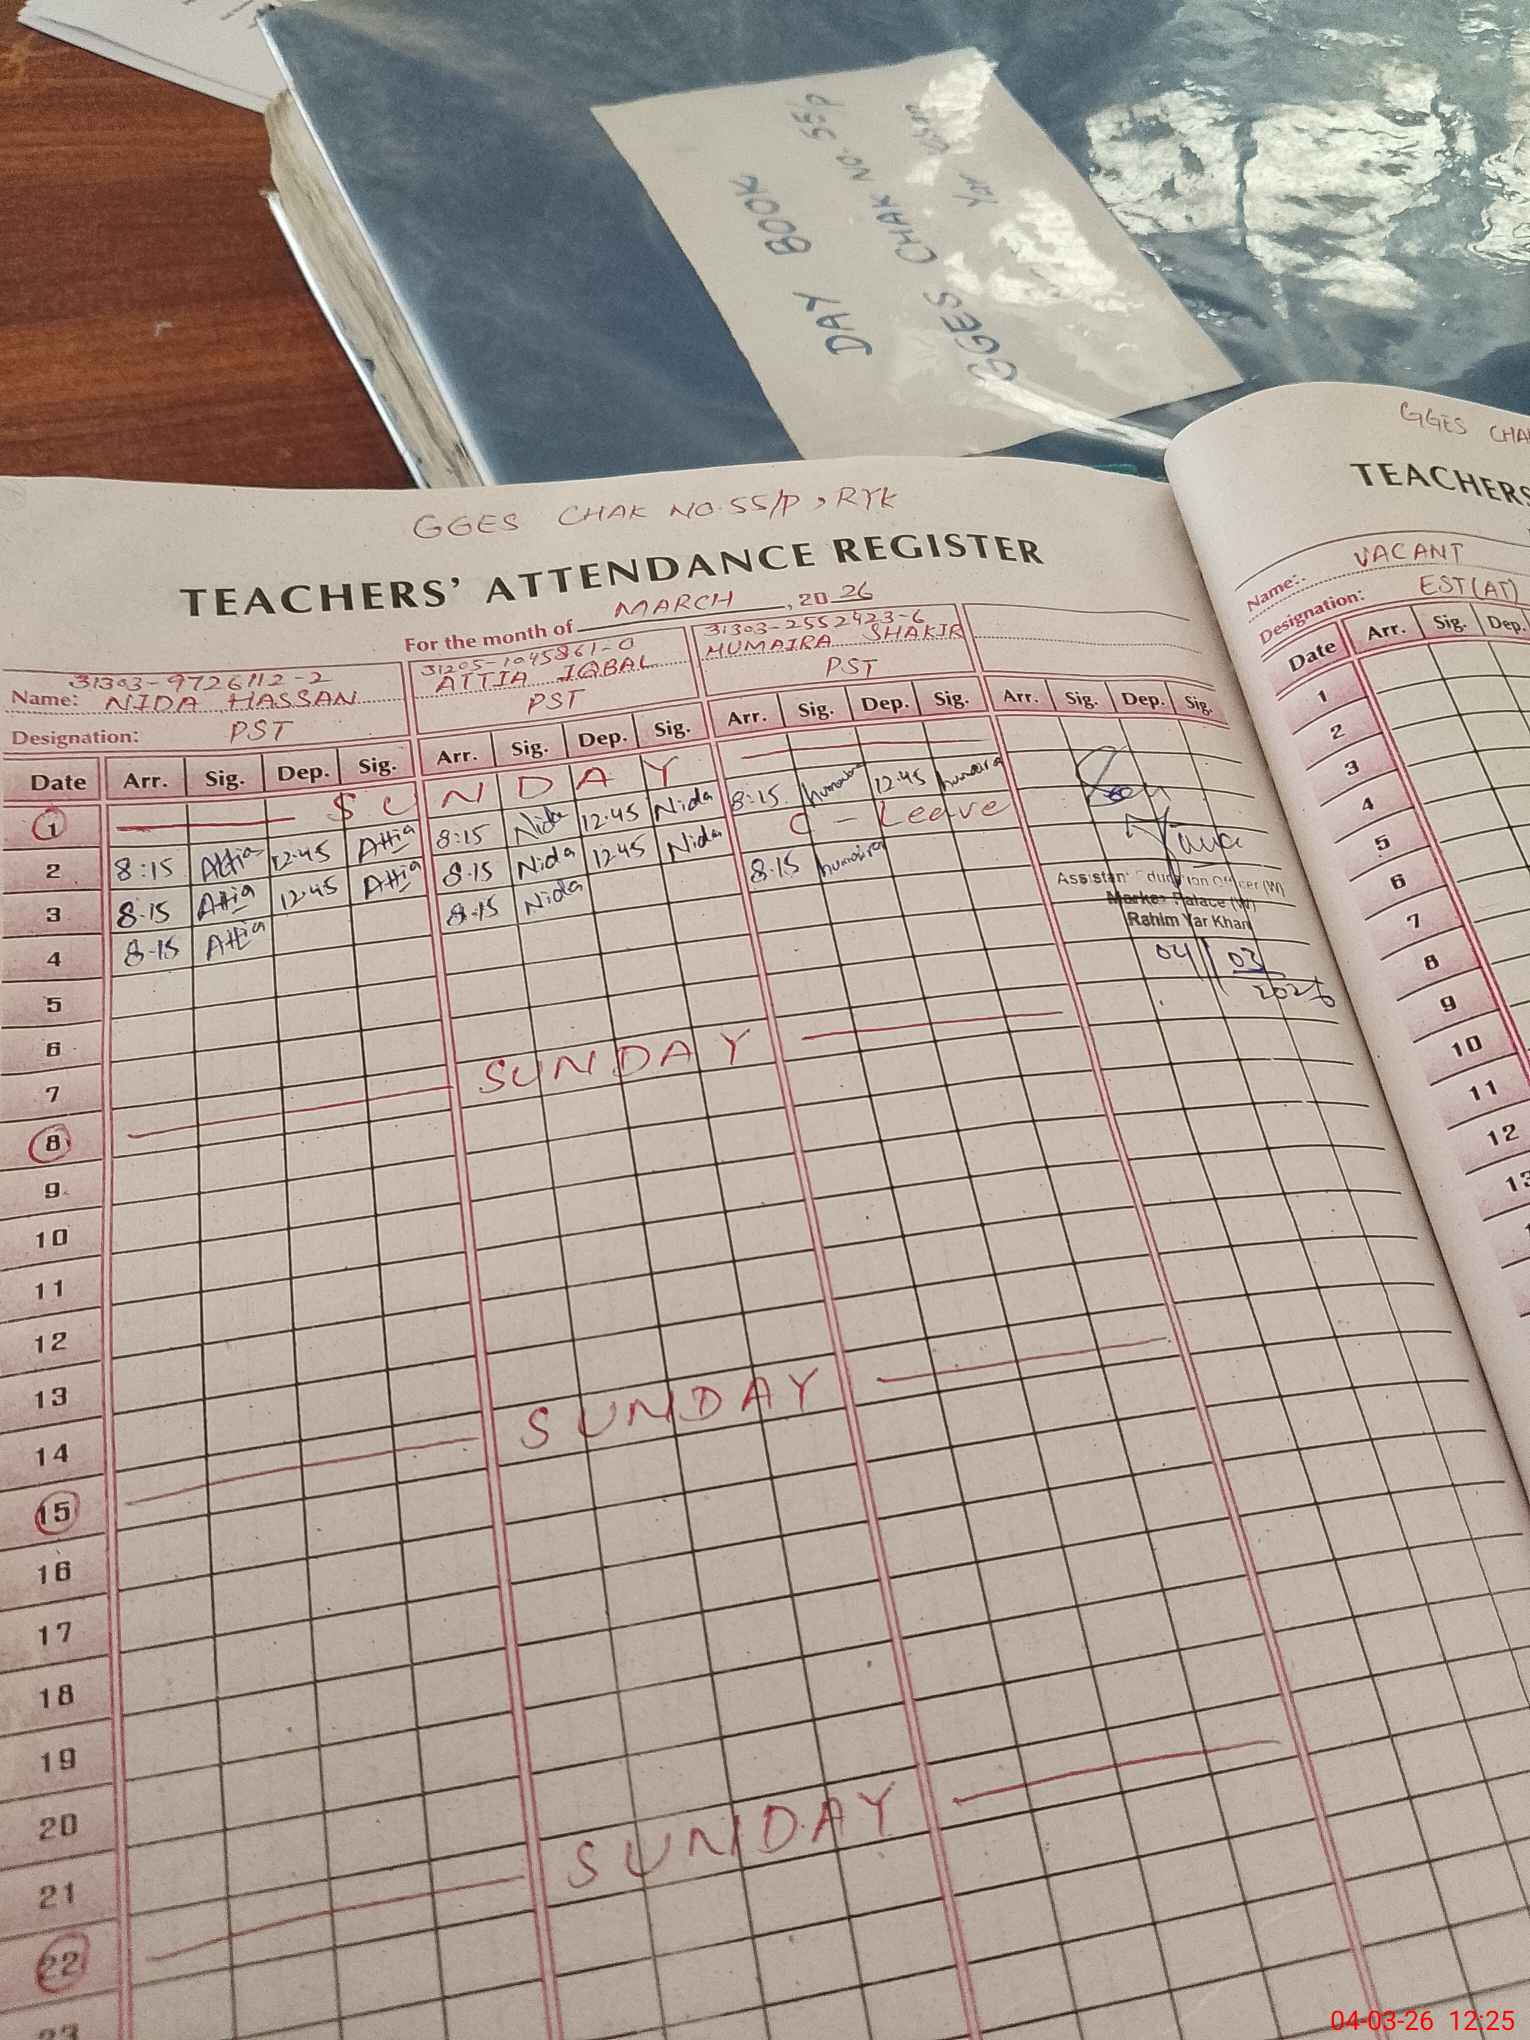 DAY BOOK
GGES CHAK NO. 55/P
GGES CHAK NO. 55/P, RYK
TEACHERS' ATTENDANCE REGISTER
For the month of MARCH, 20 26
31303-9726112-2 31205-1045861-0 31303-2552423-6
Name: NIDA HASSAN ATTIA IQBAL HUMAIRA SHAKIR
Designation: PST PST PST
Date Arr. Sig. Dep. Sig. Arr. Sig. Dep. Sig. Arr. Sig. Dep. Sig. Arr. Sig. Dep. Sig.
1 SUNDAY
2 8:15 Attia 12:45 Attia 8:15 Nida 12:45 Nida 8:15 humaira 12:45 humaira
3 8:15 Attia 12:45 Attia 8:15 Nida 12:45 Nida C - Leave
4 8:15 Attia 8:15 Nida 8:15 humaira
5
6
7
8 SUNDAY
9
10
11
12
13
14
15 SUNDAY
16
17
18
19
20
21
22 SUNDAY
23
Assistant Education Officer (W)
Markaz Palace (W)
Rahim Yar Khan
04/03/2026
GGES CHA
TEACHERS
Name: VACANT
Designation: EST(AT)
Date Arr. Sig. Dep.
1
2
3
4
5
6
7
8
9
10
11
12
13
04-03-26 12:25